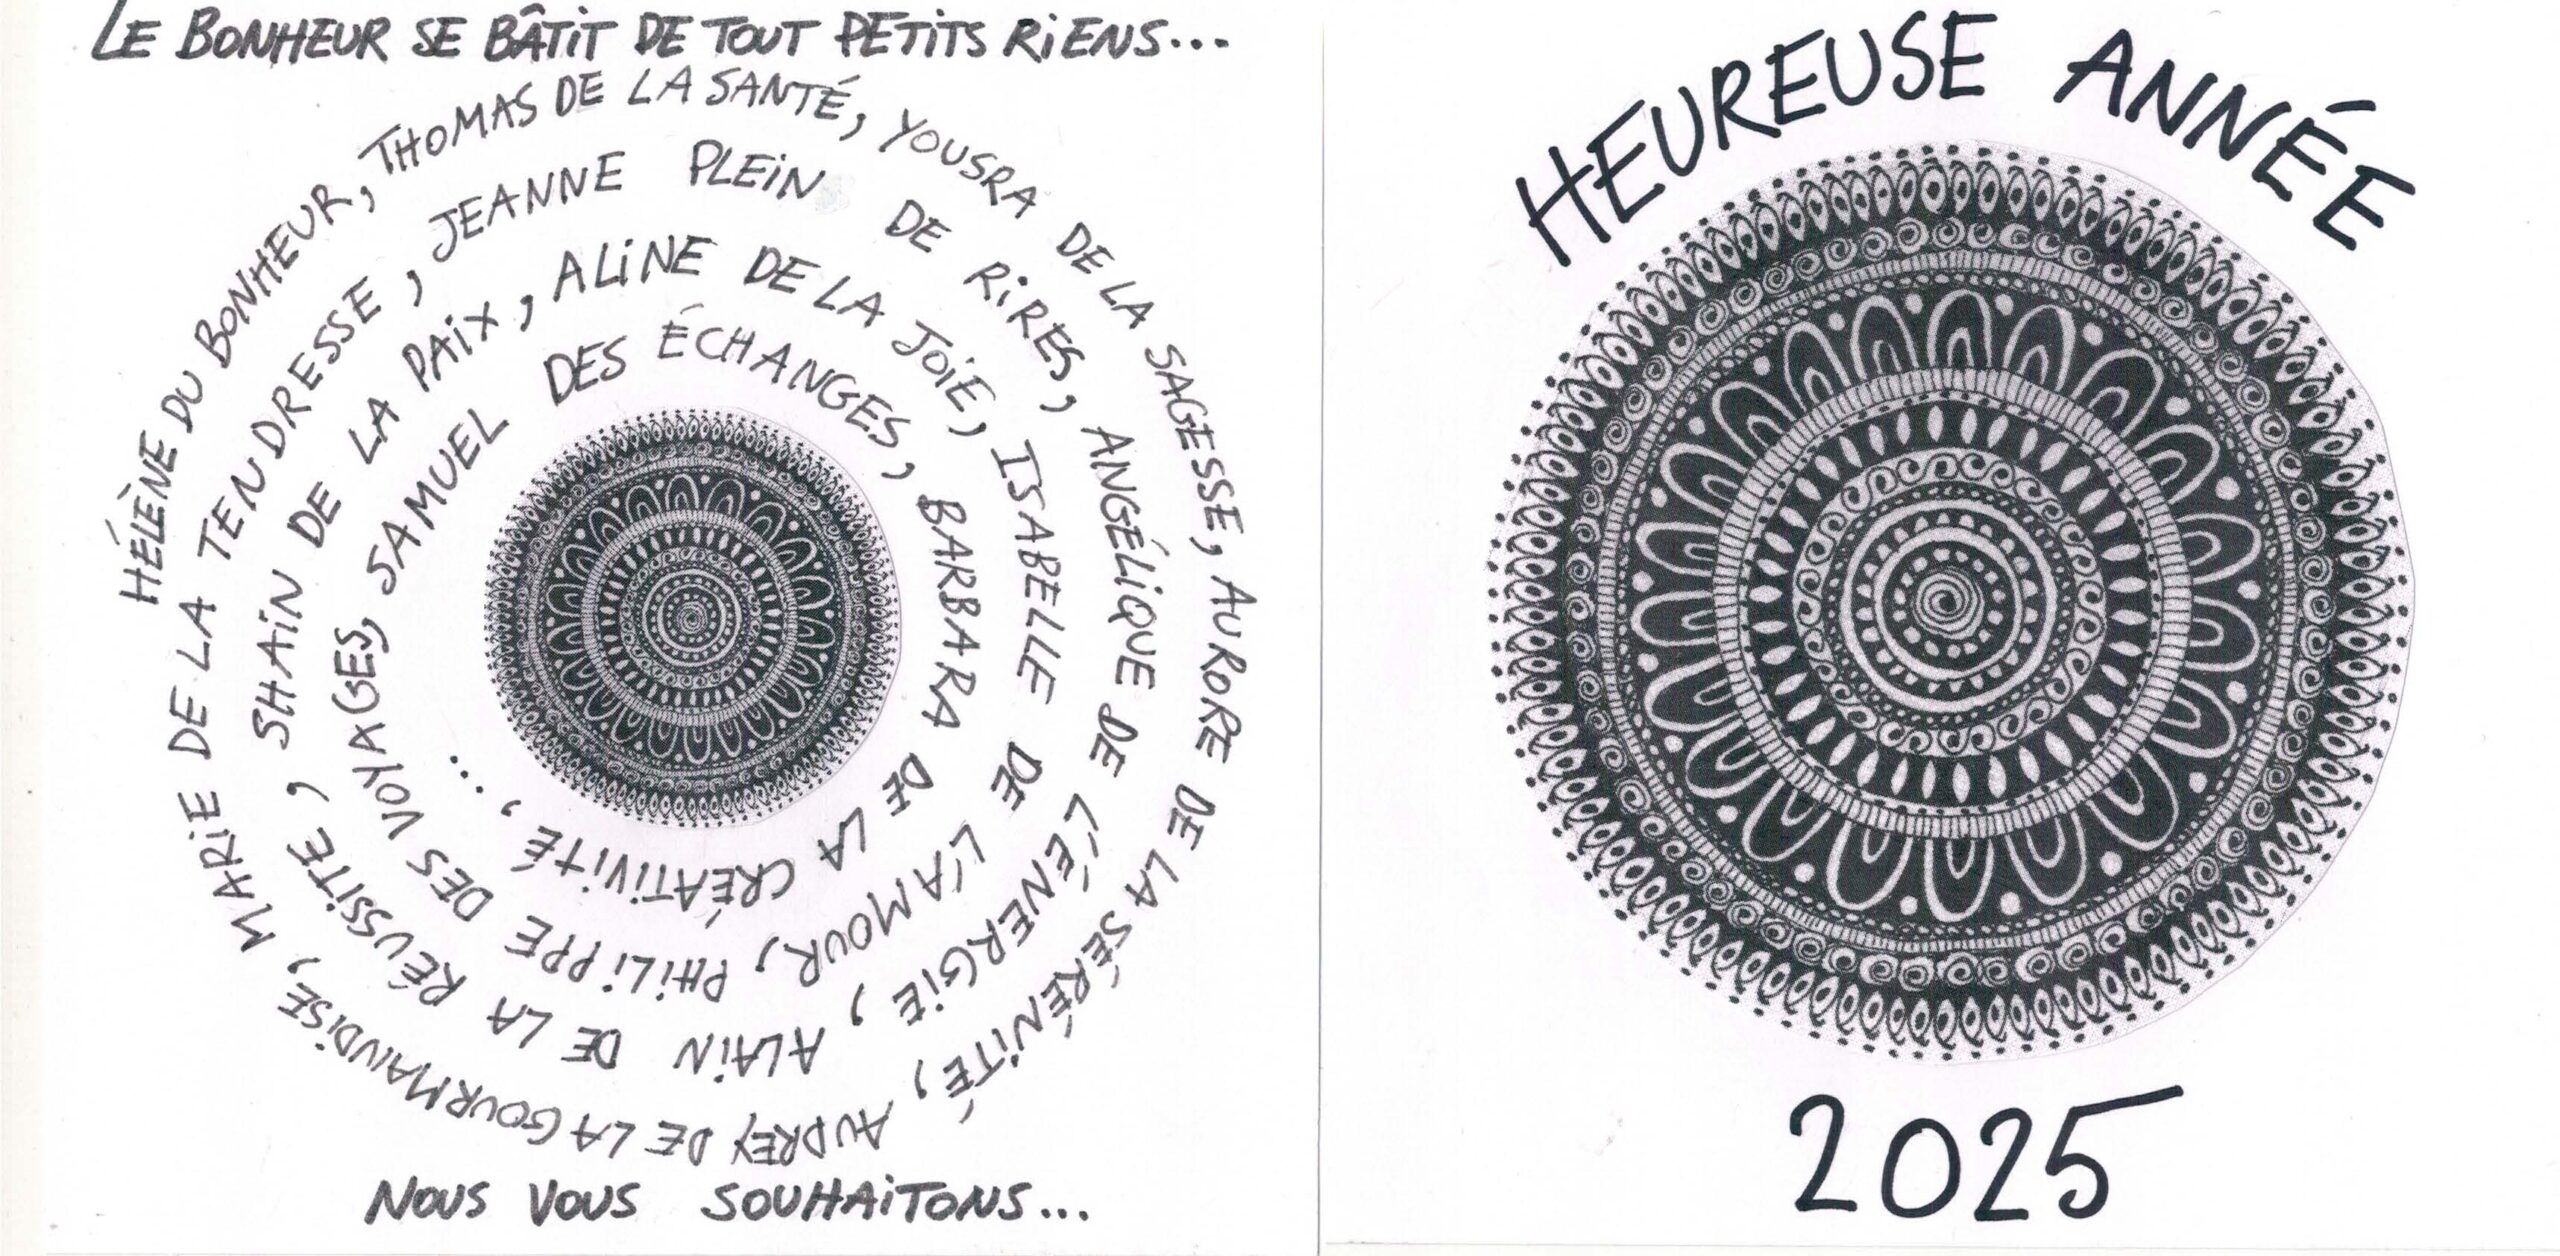 LE BONHEUR SE BÂTIT DE TOUT PETITS RIENS...
HÉLÈNE DU BONHEUR, THOMAS DE LA SANTÉ, YOUSRA DE LA SAGESSE, AURORE DE LA SÉRÉNITÉ, AUDREY DE LA GOURMANDISE, MARIE DE LA TENDRESSE, JEANNE PLEIN DE RIRES, ANGÉLIQUE DE L'ÉNERGIE, ALAIN DE LA RÉUSSITE, SHAIN DE LA PAIX, ALINE DE LA JOIE, ISABELLE DE L'AMOUR, PHILIPPE DES VOYAGES, SAMUEL DES ÉCHANGES, BARBARA DE LA CRÉATIVITÉ, ...
NOUS VOUS SOUHAITONS...
HEUREUSE ANNÉE
2025